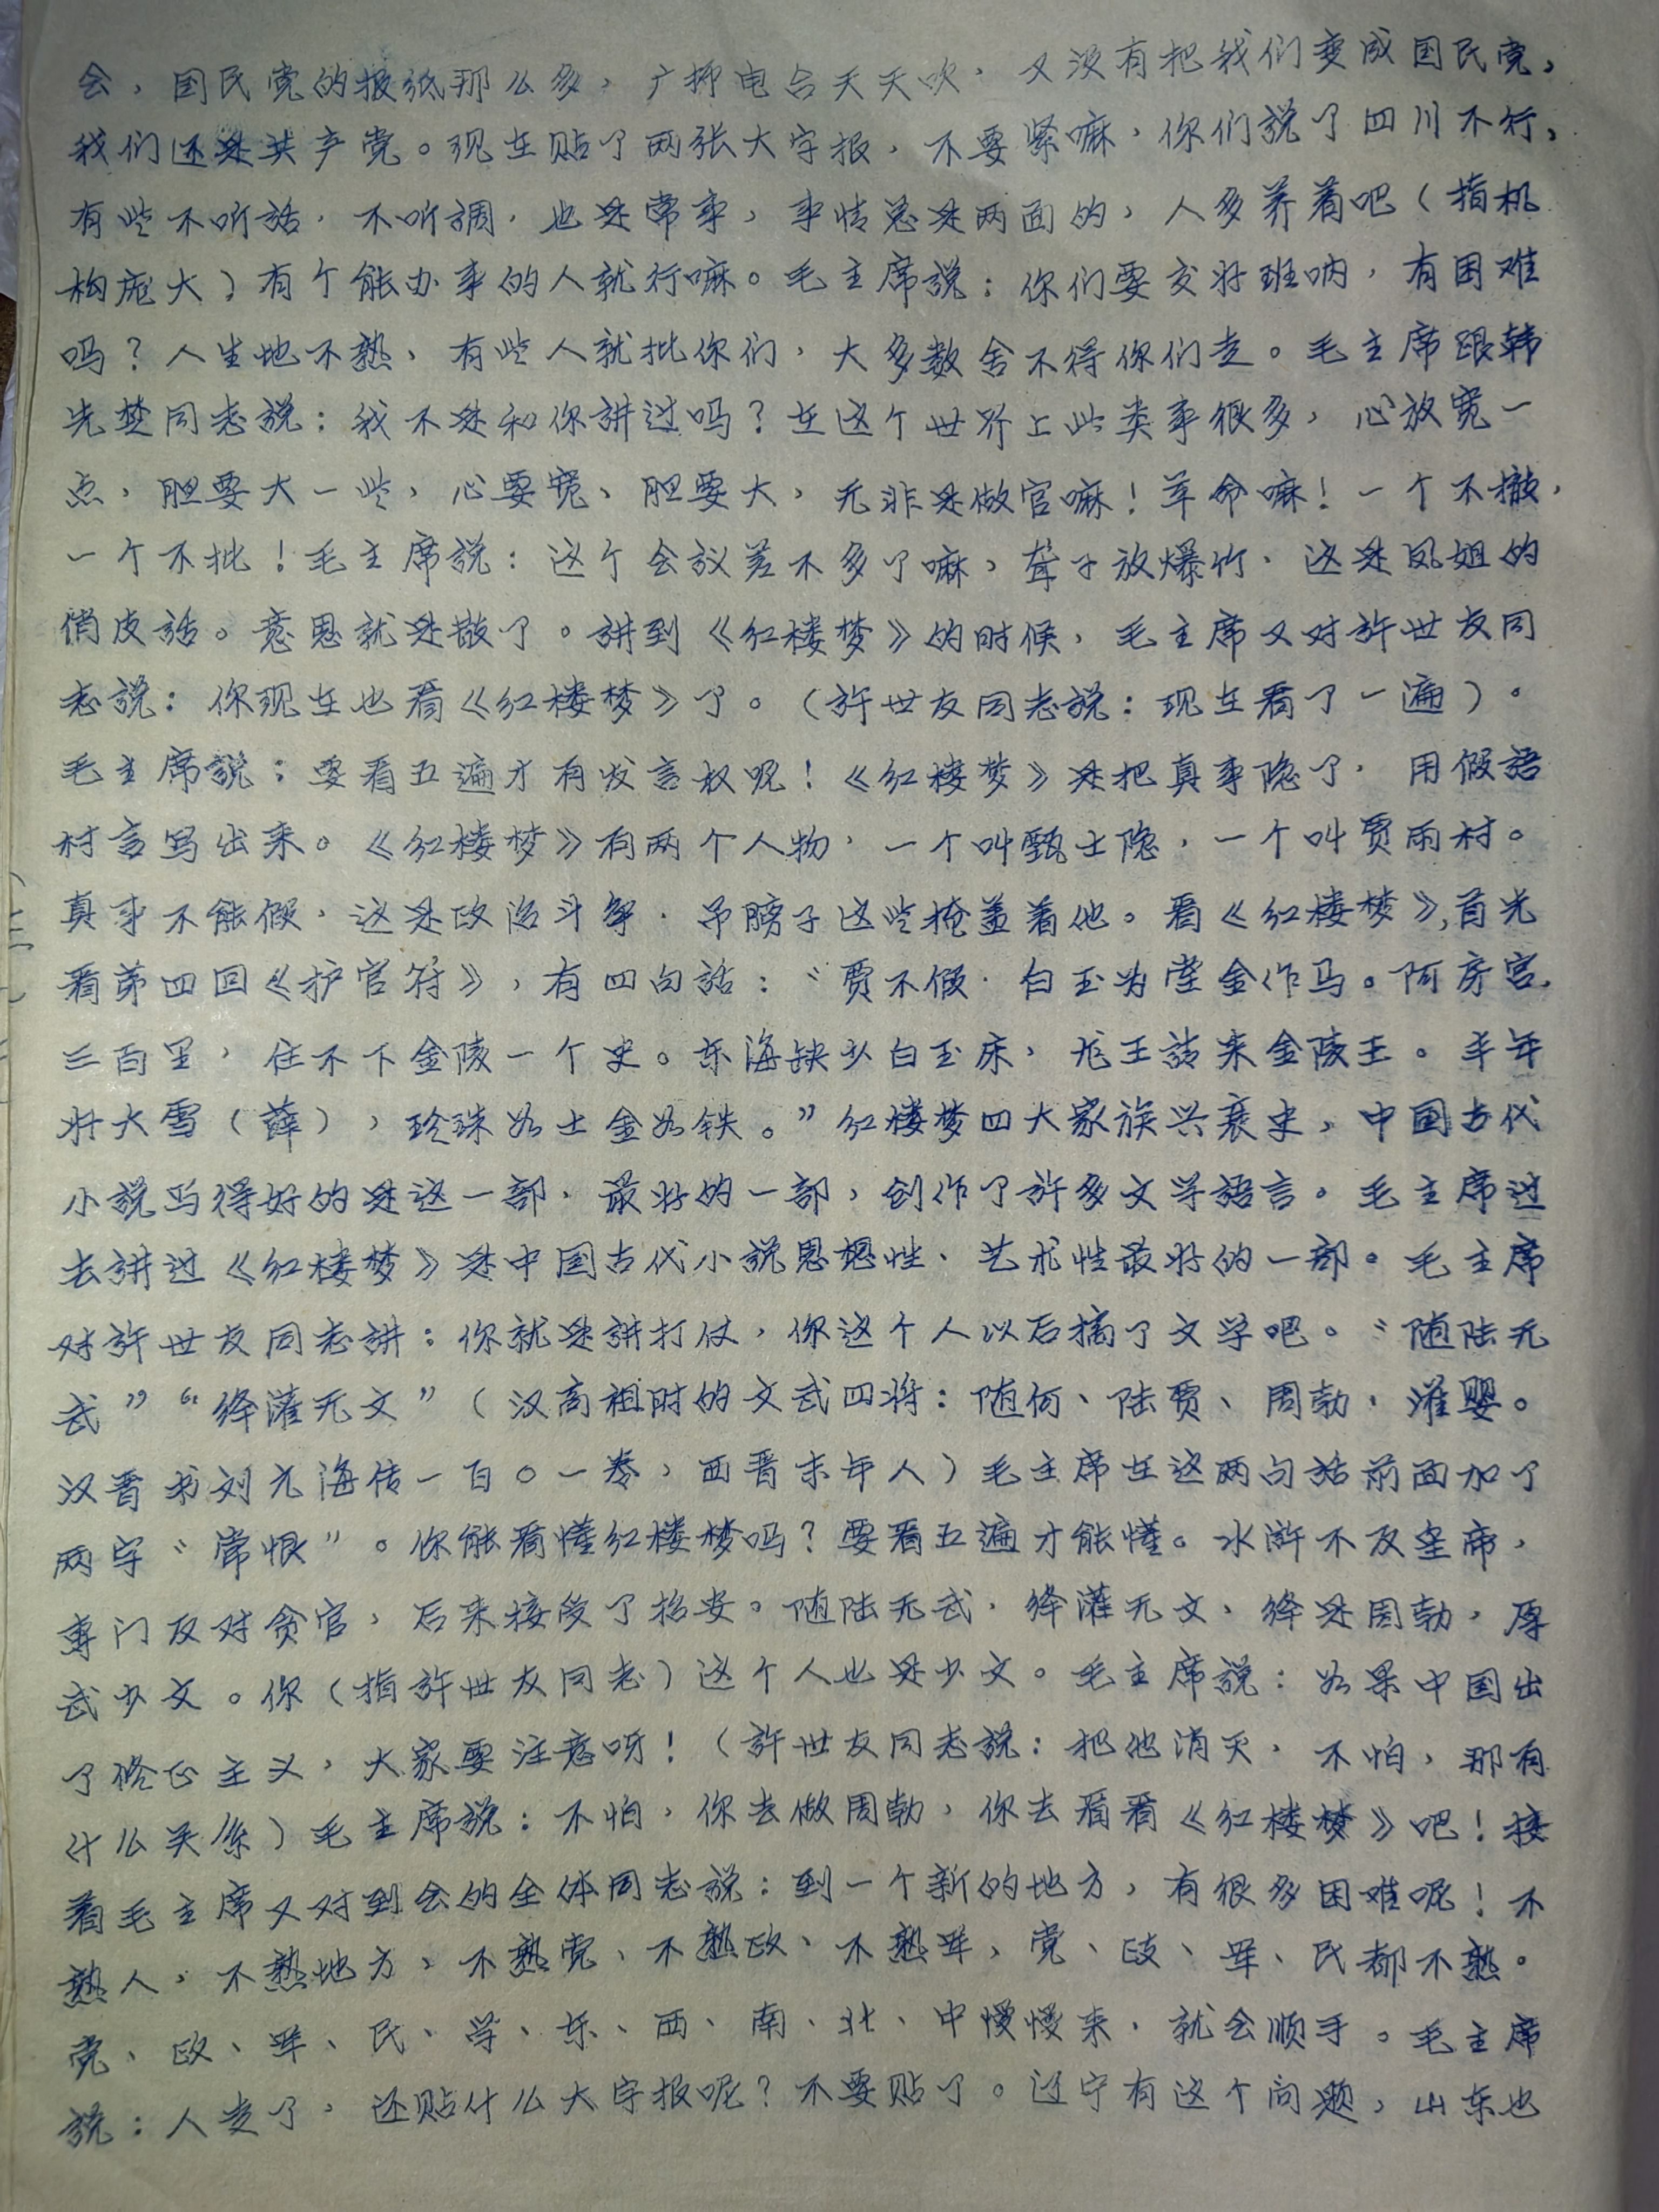 会，国民党的报纸那么多，广播电台天天吹，又没有把我们变成国民党，
我们还是共产党。现在贴了两张大字报，不要紧嘛，你们説了四川不行，
有些不听話，不听調，也是常事，事情总是两面的，人多养着吧（指机
构庞大）有个能办事的人就行嘛。毛主席説：你们要交好班呐，有困难
吗？人生地不熟，有些人就批你们，大多数舍不得你们走。毛主席跟韩
先楚同志説：我不是和你讲过吗？在这个世界上此类事很多，心放宽一
点，胆要大一些，心要宽、胆要大，无非是做官嘛！革命嘛！一个不撤，
一个不批！毛主席説：这个会议差不多了嘛，聋子放爆竹，这是凤姐的
俏皮話。意思就是散了。讲到《红楼梦》的时候，毛主席又对許世友同
志説：你现在也看《红楼梦》了。（許世友同志説：现在看了一遍）。
毛主席説：要看五遍才有发言权呢！《红楼梦》是把真事隐了，用假語
村言写出来。《红楼梦》有两个人物，一个叫甄士隐，一个叫贾雨村。
真事不能假，这是政治斗争，吊膀子这些掩盖着他。看《红楼梦》，首先
看第四回《护官符》，有四句話：“贾不假，白玉为堂金作马。阿房宫，
三百里，住不下金陵一个史。东海缺少白玉床，龙王請来金陵王。丰年
好大雪（薛），珍珠如土金如铁。”红楼梦四大家族兴衰史，中国古代
小説写得好的是这一部，最好的一部，创作了許多文学語言。毛主席过
去讲过《红楼梦》是中国古代小説思想性、艺术性最好的一部。毛主席
对許世友同志讲：你就是讲打仗，你这个人以后搞了文学吧。“随陆无
武”“绛灌无文”（汉高祖时的文武四将：随何、陆贾、周勃、灌婴。
汉晋书刘元海传一百〇一卷，西晋末年人）毛主席在这两句話前面加了
两字“常恨”。你能看懂红楼梦吗？要看五遍才能懂。水浒不反皇帝，
専门反对贪官，后来接受了招安。随陆无武，绛灌无文，绛是周勃，厚
武少文。你（指許世友同志）这个人也是少文。毛主席説：如果中国出
了修正主义，大家要注意呀！（許世友同志説：把他消灭，不怕，那有
什么关系）毛主席説：不怕，你去做周勃，你去看看《红楼梦》吧！接
着毛主席又对到会的全体同志説：到一个新的地方，有很多困难呢！不
熟人，不熟地方，不熟党、不熟政、不熟军，党、政、军、民都不熟。
党、政、军、民、学、东、西、南、北、中慢慢来，就会顺手。毛主席
説：人走了，还贴什么大字报呢？不要贴了。辽宁有这个问题，山东也